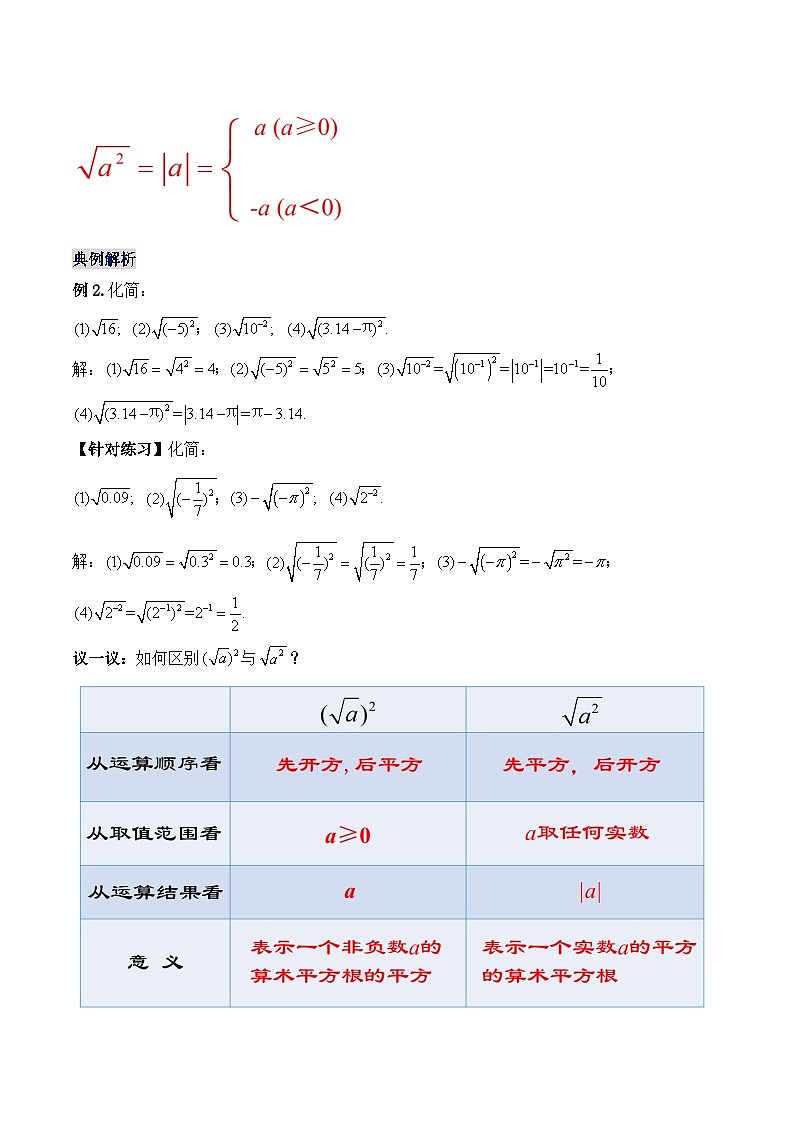 √a² = |a| = { a (a≥0)
-a (a＜0)
典例解析
例 2. 化简：
(1)√16; (2)√(−5)²; (3)√10⁻²; (4)√(3.14−π)².
解：(1)√16 = √4² = 4; (2)√(−5)² = √5² = 5; (3)√10⁻²=√(10⁻¹)²=|10⁻¹|=10⁻¹=1/10;
(4)√(3.14−π)²=|3.14−π|=π−3.14.
【针对练习】化简：
(1)√0.09; (2)√(−1/7)²; (3)−√(−π)²; (4)√2⁻².
解：(1)√0.09 = √0.3² = 0.3; (2)√(−1/7)² = √(1/7)² = 1/7; (3)−√(−π)²=−√π²=−π;
(4)√2⁻²=√(2⁻¹)²=2⁻¹ = 1/2.
议一议：如何区别(√a)²与√a²？
(√a)² √a²
从运算顺序看 先开方,后平方 先平方，后开方
从取值范围看 a≥0 a取任何实数
从运算结果看 a |a|
意 义 表示一个非负数a的 表示一个实数a的平方
算术平方根的平方 的算术平方根